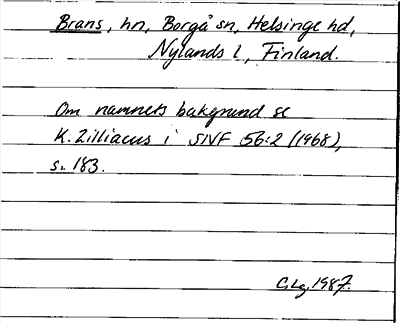 Brans, hn, Borgå sn, Helsinge hd,
Nylands l, Finland.
Om namnets bakgrund se
K. Zilliacus i SNF 56:2 (1968),
s. 183.
C.Lg. 1987.